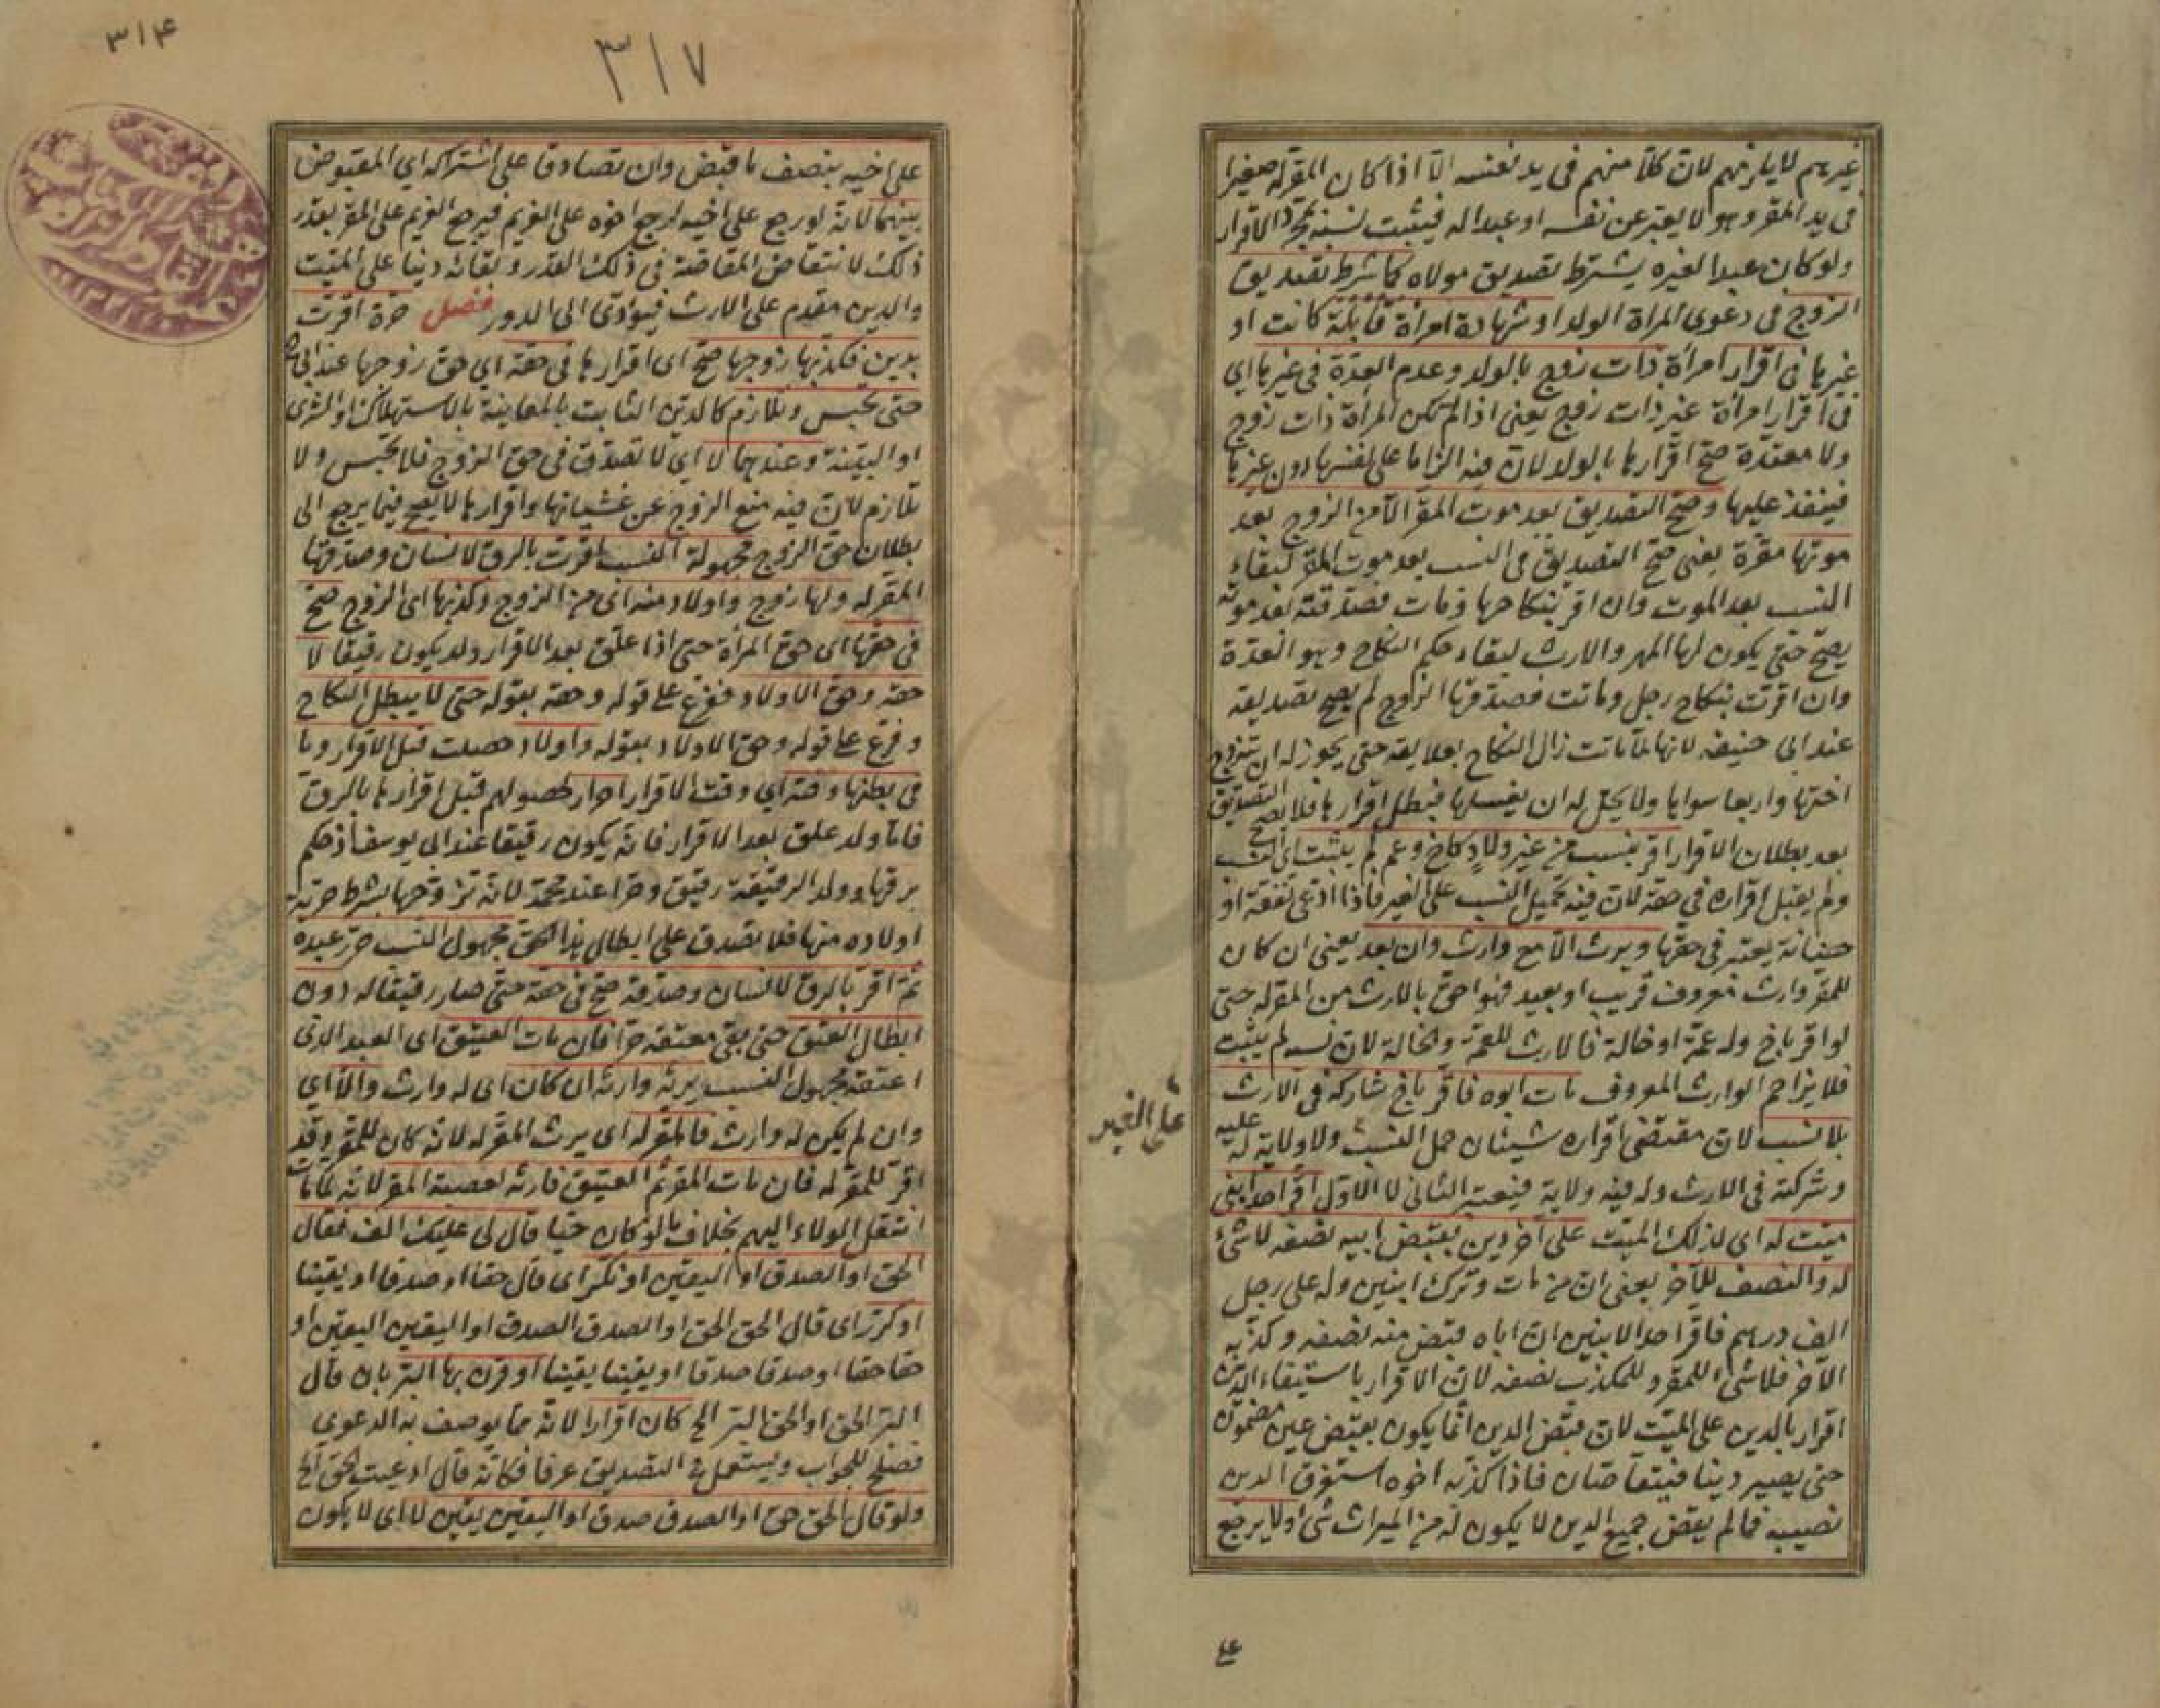 غيرهم لا يلزمهم لان كلا منهم فى يد نفسه الا اذا كان المقر له صغيرا
فى يد المقر وهو لا يعبر عن نفسه او عبدا له فيثبت نسبه بمجرد الاقرار
ولو كان عبدا لغيره يشترط تصديق مولاه كما شرط تصديق
الزوج فى دعوى المراة الولد او شهادة امرأة قابلة كانت او
غيرها فى اقرار امرأة ذات زوج بالولد وعدم العدة فى غيرها اى
فى اقرار امرأة غير ذات زوج يعنى اذا لم تكن المرأة ذات زوج
ولا معتدة صح اقرارها بالولد لان فيه الزاما على نفسها دون غيرها
فينفذ عليها وصح التصديق بعد موت المقر الا من الزوج بعد
موتها مقرة يعنى صح التصديق فى النسب بعد موت المقر لبقاء
النسب بعد الموت وان اقر بنكاحها ومات فصدقته بعد موته
يصح حتى يكون لها المهر والارث لبقاء حكم النكاح وهو العدة
وان اقرت بنكاح رجل وماتت فصدقها الزوج لم يصح تصديقه
عند ابى حنيفه لانها لما ماتت زال النكاح بعلايقه حتى يجوز له ان يتزوج
اختها واربعا سواها ولا يحل له ان يغسلها فبطل اقرارها فلا يصح التصديق
بعد بطلان الاقرار اقر بنسب من غير ولاد كاخ وعم لم يثبت اى النسب
ولم يقبل اقراره فى حقه لان فيه تحميل النسب على الغير فاذا ادعى نفقة او
حضانة يعتبر فى حقها ويرث الا مع وارث وان بعد يعنى ان كان
للمقر وارث معروف قريب او بعيد فهو احق بالارث من المقر له حتى
لو اقر باخ وله عمة او خالة فالارث للعمة والخالة لان نسبه لم يثبت
فلا يزاحم الوارث المعروف مات ابوه فاقر باخ شاركه فى الارث
بلا نسب لان مقتضى اقراره شيئان حمل النسب ولا ولاية له عليه
على الغير
وشركته فى الارث وله فيه ولاية فيعتبر الثانى لا الاول اقر احد ابنى
ميت له اى لذلك الميت على آخر دين بقبض ابيه نصفه لا شئ
له والنصف للآخر يعنى ان من مات وترك ابنين وله على رجل
الف درهم فاقر احد الابنين ان اباه قبض منه نصفه وكذبه
الآخر فلا شئ للمقر وللمكذب نصفه لان الاقرار باستيفاء الدين
اقرار بالدين على الميت لان قبض الدين انما يكون بقبض عين مضمون
حتى يصير دينا فيتقاصان فاذا كذبه اخوه استغرق الدين
نصيبه فما لم يقض جميع الدين لا يكون له من الميراث شئ ولا يرجع
٣١٤
٣١٧
على اخيه بنصف ما قبض وان تصادقا على اشتراكه اى المقبوض
بينهما لانه لو رجع على اخيه لرجع اخوه على الغريم فيرجع الغريم على المقر بقدر
ذلك لانتقاض المقاصة فى ذلك القدر وبقائه دينا على الميت
والدين مقدم على الارث فيؤدى الى الدور فصل حرة اقرت
بدين فكذبها زوجها صح اى اقرارها فى حقه اى حق زوجها عند ابى
حتى تحبس وتلازم كالدين الثابت بالمعاينة بالاستهلاك او الشرى
او البينة وعندهما لا اى لا تصدق فى حق الزوج فلا تحبس ولا
تلازم لان فيه منع الزوج عن غشيانها واقرارها لا يصح فيما يرجع الى
بطلان حق الزوج مجهولة النسب اقرت بالرق لانسان وصدقها
المقر له ولها زوج واولاد منه اى من الزوج وكذبها اى الزوج صح
فى حقها اى حق المرأة حتى اذا علق بعد الاقرار ولد يكون رقيقا لا
حقه وحق الاولاد فرع على قوله وحقه بقوله حتى لا يبطل النكاح
وفرع على قوله وحق الاولاد بقوله واولاد حصلت قبل الاقرار وما
فى بطنها وقته اى وقت الاقرار احرار لحصولهم قبل اقرارها بالرق
فاما ولد علق بعد الاقرار فانه يكون رقيقا عند ابى يوسف اذ حكم
برقها وولد الرقيقة رقيق وحرا عند محمد لانه تزوجها بشرط حرية
اولاده منها فلا تصدق على ابطال هذا الحق مجهول النسب حرر عبده
ثم اقر بالرق لانسان وصدقه صح فى حقه حتى صار رقيقا له دون
ابطال العتق حتى بقى معتقه حرا فان مات العتيق اى العبد الذى
اعتقه مجهول النسب يرثه وارثه ان كان اى له وارث والا اى
وان لم يكن له وارث فالمقر له اى يرث المقر له لانه كان للمقر وقد
اقر للمقر له فان مات المقر ثم العتيق فارثه لعصبة المقر لانه لما مات
انتقل الولاء اليهم بخلاف ما لو كان حيا قال لى عليك الف فقال
الحق او الصدق او اليقين او نكر اى قال حقا او صدقا او يقينا
او كرر اى قال الحق الحق او الصدق الصدق او اليقين اليقين او
حقا حقا او صدقا صدقا او يقينا يقينا او قرن بها البر بان قال
البر الحق او الحق البر الخ كان اقرارا لانه مما يوصف به الدعوى
فصلح للجواب ويستعمل فى التصديق عرفا فكانه قال ادعيت الحق الخ
ولو قال الحق حق او الصدق صدق او اليقين يقين لا اى لا يكون